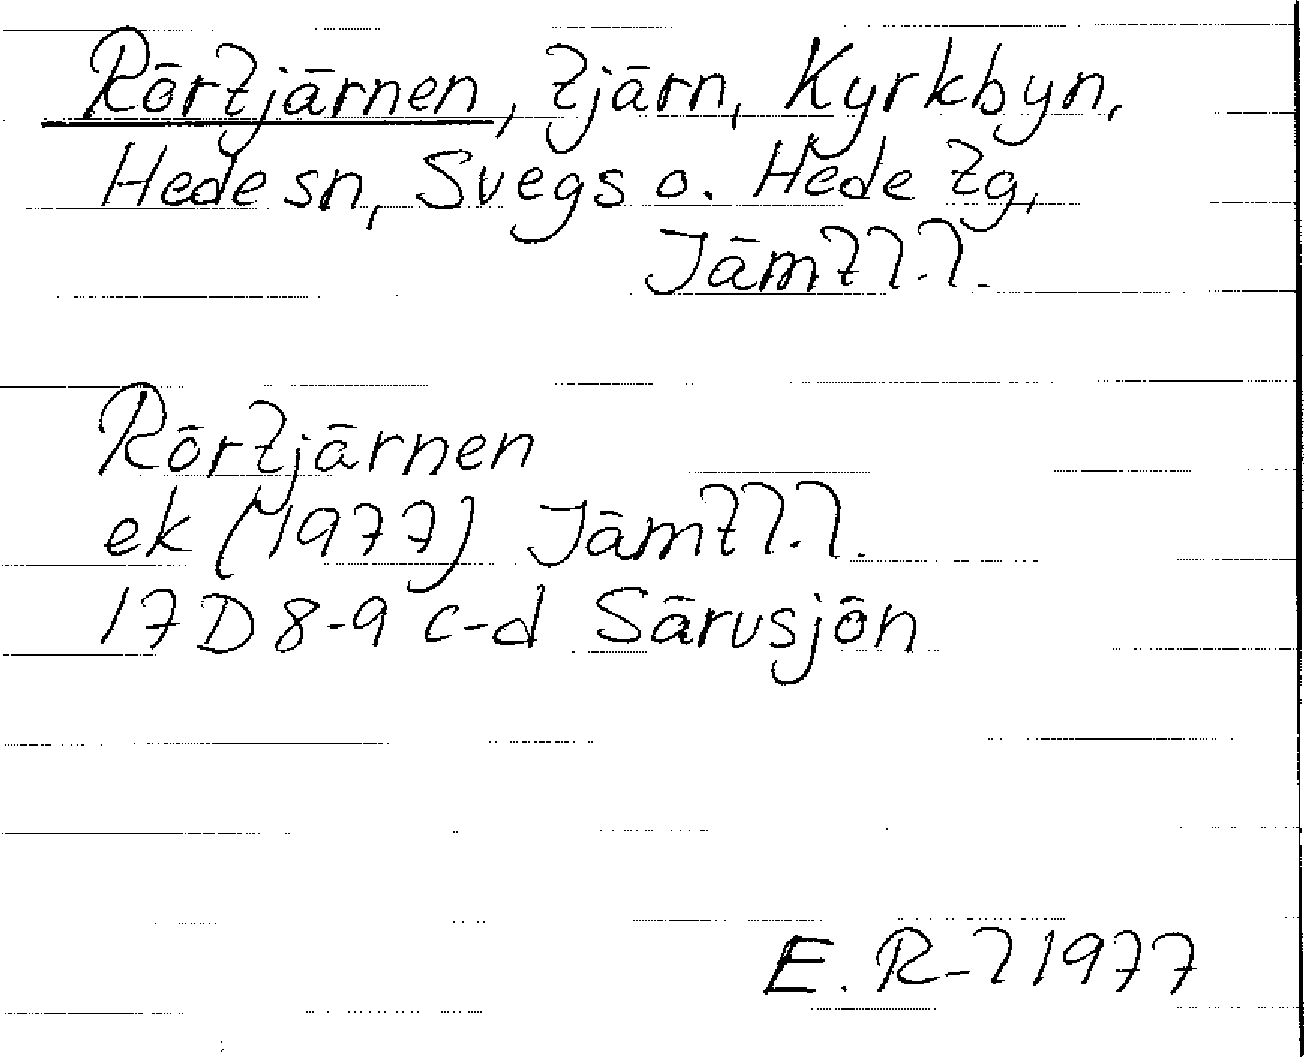 Rörtjärnen, tjärn, Kyrkbyn,
Hede sn, Svegs o. Hede tg,
Jämtl. l.
Rörtjärnen
ek (1977) Jämtl. l.
17D 8-9 c-d Särvsjön
E. R-l 1977